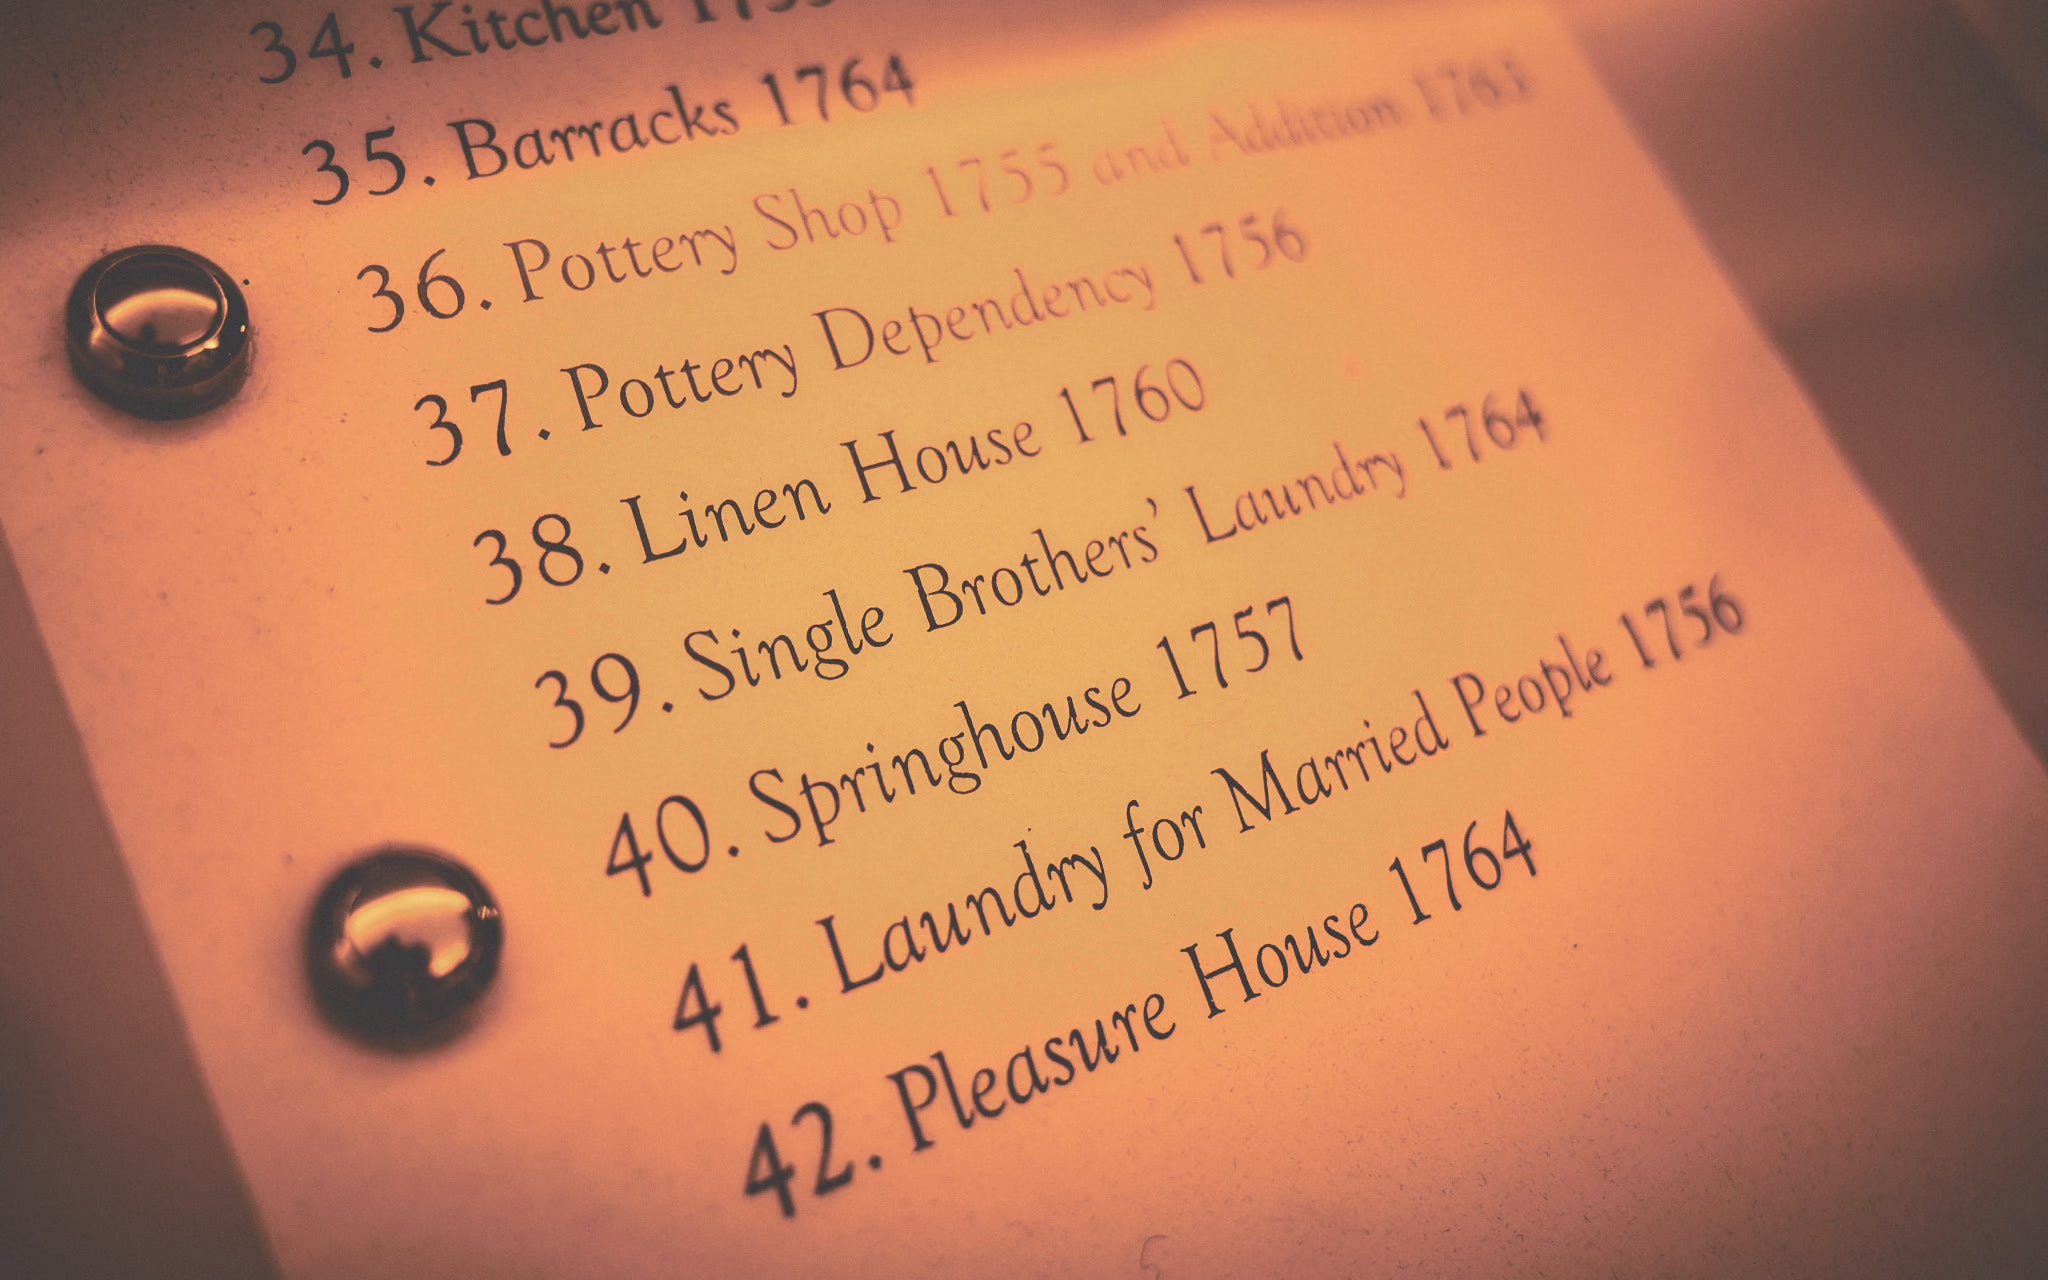 34. Kitchen
35. Barracks 1764
36. Pottery Shop 1755 and Addition
37. Pottery Dependency 1756
38. Linen House 1760
39. Single Brothers’ Laundry 1764
40. Springhouse 1757
41. Laundry for Married People 1756
42. Pleasure House 1764